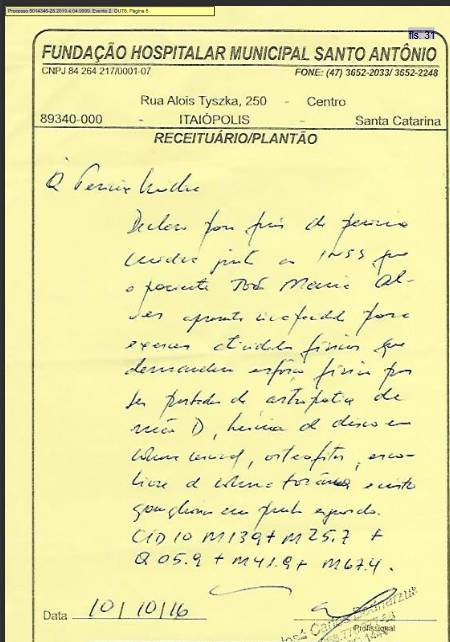 Processo 5014346-28.2019.4.04.9999, Evento 2, OUT8, Página 5
fls. 31
FUNDAÇÃO HOSPITALAR MUNICIPAL SANTO ANTÔNIO
CNPJ 84 264 217/0001-07 FONE: (47) 3652-2033/ 3652-2248
Rua Alois Tyszka, 250 - Centro
89340-000 - ITAIÓPOLIS - Santa Catarina
RECEITUÁRIO/PLANTÃO
À Pericia Médica
Declaro para fins de perícia
médica junto ao INSS que
o paciente João Maria Al-
ves apresenta incapacidade para
exercer atividades físicas que
demandem esforço físico por
ser portador de artropatia de
mão D, hérnia de disco em
coluna cervical, osteofitos, esco-
liose de coluna torácica e cisto
ganglionar em punho esquerdo.
CID 10 M139 + M25.7 +
Q05.9 + M41.9 + M67.4.
Data 10/10/16
José Carlos
Profissional